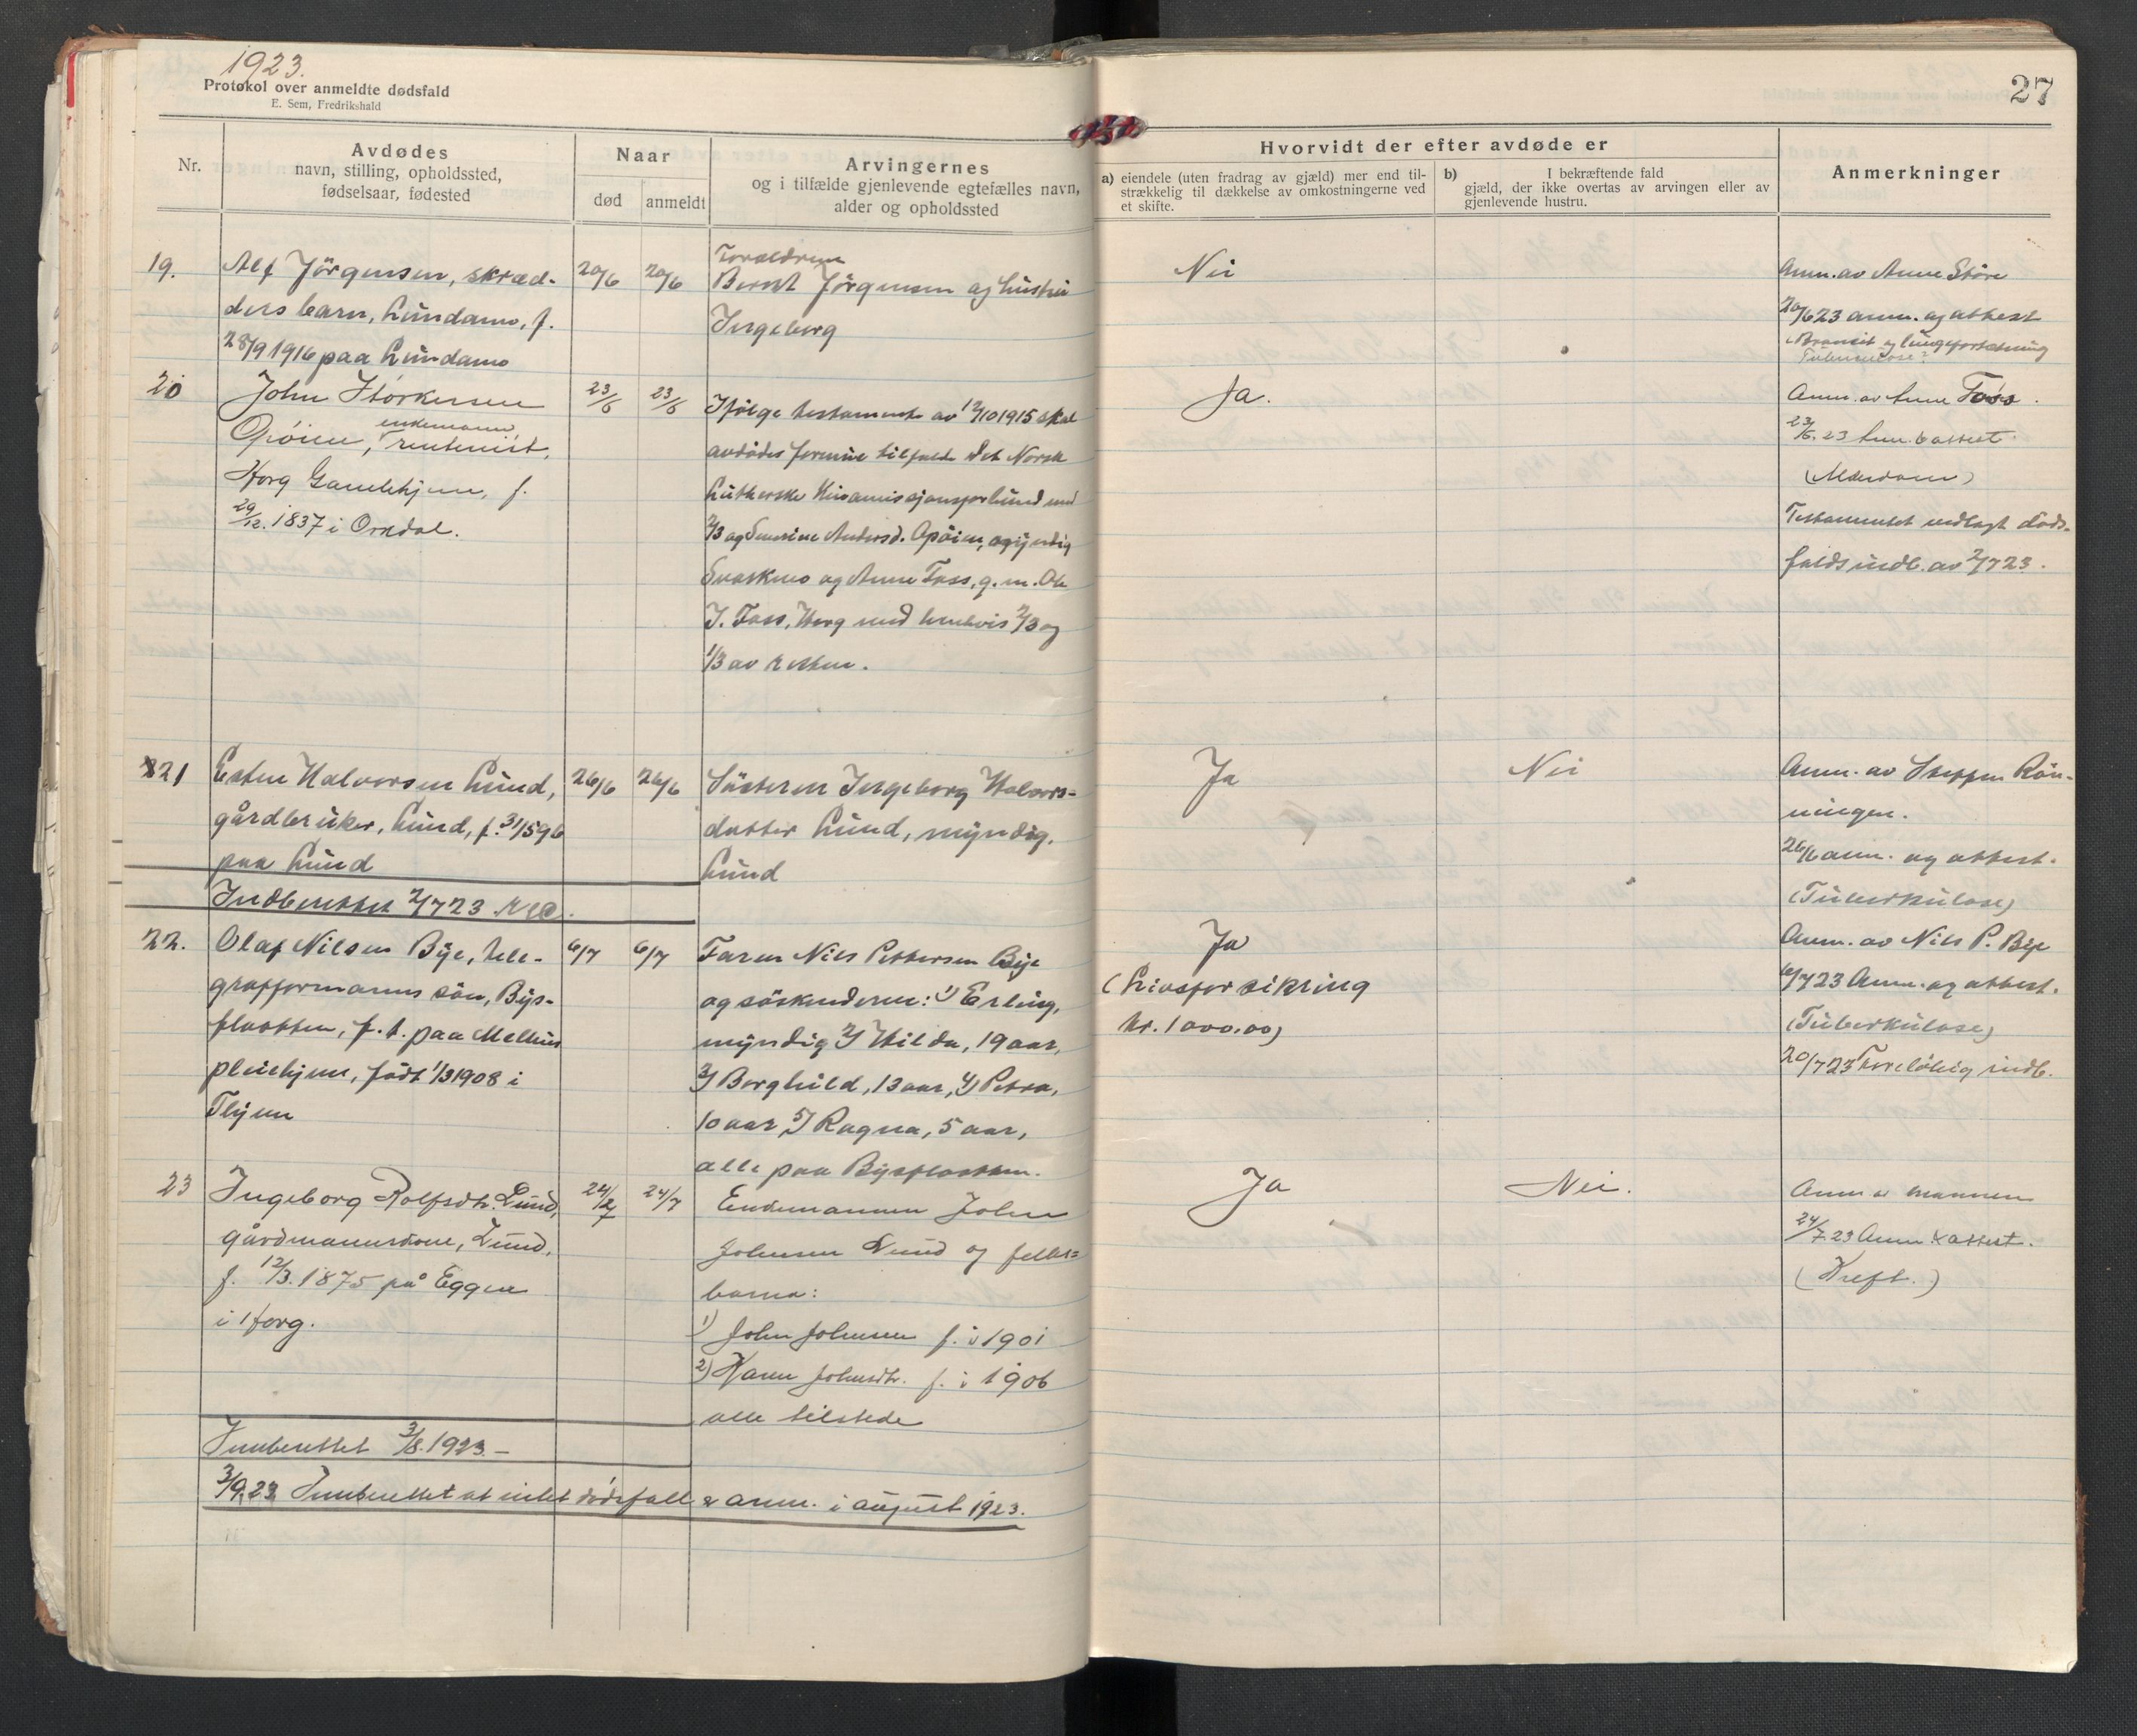 1923.
Protokol over anmeldte dødsfald
E. Sem, Fredrikshald
27
Nr.
Avdødes
navn, stilling, opholdssted,
fødselsaar, fødested
Naar
død
anmeldt
Arvingernes
og i tilfælde gjenlevende egtefælles navn,
alder og opholdssted
Hvorvidt der efter avdøde er
a) eiendele (uten fradrag av gjæld) mer end til-
strækkelig til dækkelse av omkostningerne ved
et skifte.
b) I bekræftende fald
gjæld, der ikke overtas av arvingen eller av
gjenlevende hustru.
Anmerkninger
19.
Alf Jörgensen, skræd-
ders barn, Lundamo, f.
28/9 1916 paa Lundamo
20/6
20/6
Forældrene
Bernt Jörgensen og hustru
Ingeborg
Nei
Anm. av Anne Støre
20/6 23 anm. og attest
20
John Størkersen
enkemann
, rentenist,
Horg Gamlehjem, f.
29/12. 1837 i Orkdal.
23/6
23/6
Ifölge testamente av 12/10 1915 skal
avdödes formue tilfalde Det Norsk
Lutherske Kinamissjonsforbund med
2/3 og Andersd. myndig
og Anne Foss, g. m. Ole
J. Foss, Horg med henhvis 2/3 og
1/3 av resten.
Ja.
Anm. av Anne Foss.
23/6. 23 Anm. & attest.
(Alderdom)
Testamentet vedlagt döds-
faldsindb. av 2/7 23.
21
Esten Halvorsen Lund,
gårdbruker, Lund, f. 31/5 96
paa Lund
26/6
26/6
Søsteren Ingeborg Halvors-
datter Lund, myndig,
Lund
Ja
Nei
Anm. av Steffen Rön-
ningen.
26/6 anm. og attest.
(Tuberkulose)
Indberettet 2/7 23.
22.
Olaf Nilsen Bye, tele-
grafformanns sön, Bys-
flaatten, f. t. paa Melhus
pleiehjem, födt 1/3 1908 i
6/7
6/7
Faren Nils Pettersen Bye
og söskenderne: 1) Erling,
myndig 2) Hilda, 19 aar,
3) Borghild, 13 aar, 4) Petra,
10 aar 5) Ragna, 5 aar,
alle paa Bysflaatten.
Ja
(Livsforsikring
kr. 1000.00)
Anm. av Nils P. Bye
6/7 23 Anm. og attest.
(Tuberkulose)
20/7 23 Foreløbig indb.
23
Ingeborg Rolfsdtr. Lund,
gårdmannskone, Lund,
f. 12/3. 1875 på Eggen
i Horg.
24/7
24/7
Enkemannen John
Johnsen Lund og felles-
barna:
1) John Johnsen f. i 1901
2) Karen Johnsdtr. f. i 1906
alle tilstede
Ja
Nei.
Anm av mannen
24/7 23 Anm & attest.
(Kreft.)
Innberettet 3/8. 1923. –
3/9. 23. Innberettet at intet dødsfall er anm. i august 1923.